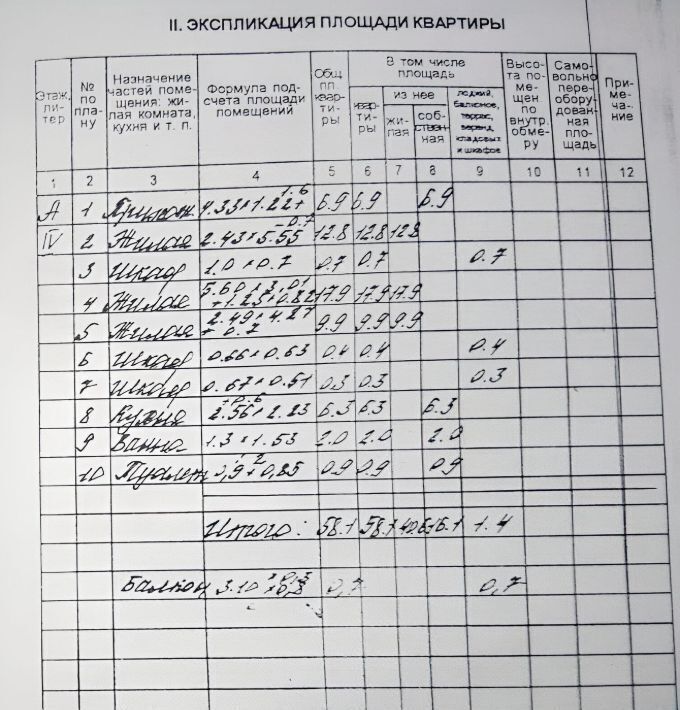 II. ЭКСПЛИКАЦИЯ ПЛОЩАДИ КВАРТИРЫ
Этаж, ли- тер
№ по пла- ну
Назначение частей поме- щения: жи- лая комната, кухня и т. п.
Формула под- счета площади помещений
Общ. пл. квар- ти- ры
В том числе площадь
квар- ти- ры
из нее
жи- лая
соб- ствен- ная
лоджий, балконов, террас, веранд, кладовых и шкафов
Высо- та по- ме- щен по внутр. обме- ру
Само- вольно пере- обору- дован- ная пло- щадь
При- ме- ча- ние
1 2 3 4 5 6 7 8 9 10 11 12
А 1 Прихож. 4.33×1.22+1.6 6.9 6.9 6.9
IV 2 Жилая 2.43×5.55-0.7 12.8 12.8 12.8
3 Шкаф 1.0×0.7 0.7 0.7 0.7
4 Жилая 5.60×3.01 +1.25×0.82 17.9 17.9 17.9
5 Жилая 2.49×4.27 + 0.2 9.9 9.9 9.9
6 Шкаф 0.66×0.63 0.4 0.4 0.4
7 Шкаф 0.67×0.51 0.3 0.3 0.3
8 Кухня +0.6 2.56×2.23 6.3 6.3 6.3
9 Ванна 1.3×1.53 2.0 2.0 2.0
10 Туалет 0,85 0.9 0.9 0.9
Итого: 58.1 58.1 40.6 16.1 1.4
Балкон 3.10 0,7 0,7